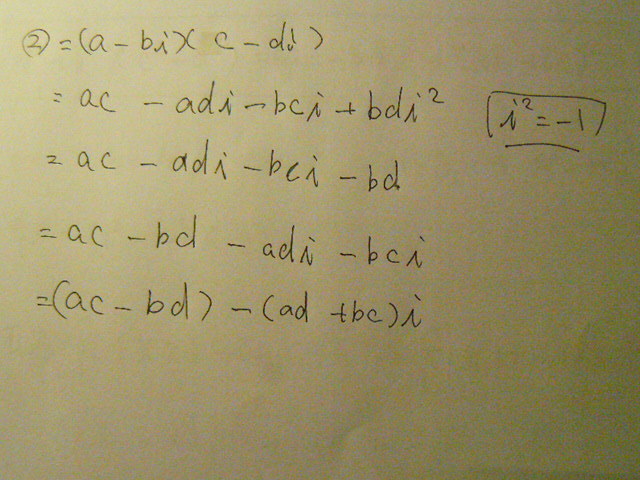 ② = (a - bi)(c - di)
= ac - adi - bci + bdi² (i² = -1)
= ac - adi - bci - bd
= ac - bd - adi - bci
= (ac - bd) - (ad + bc)i